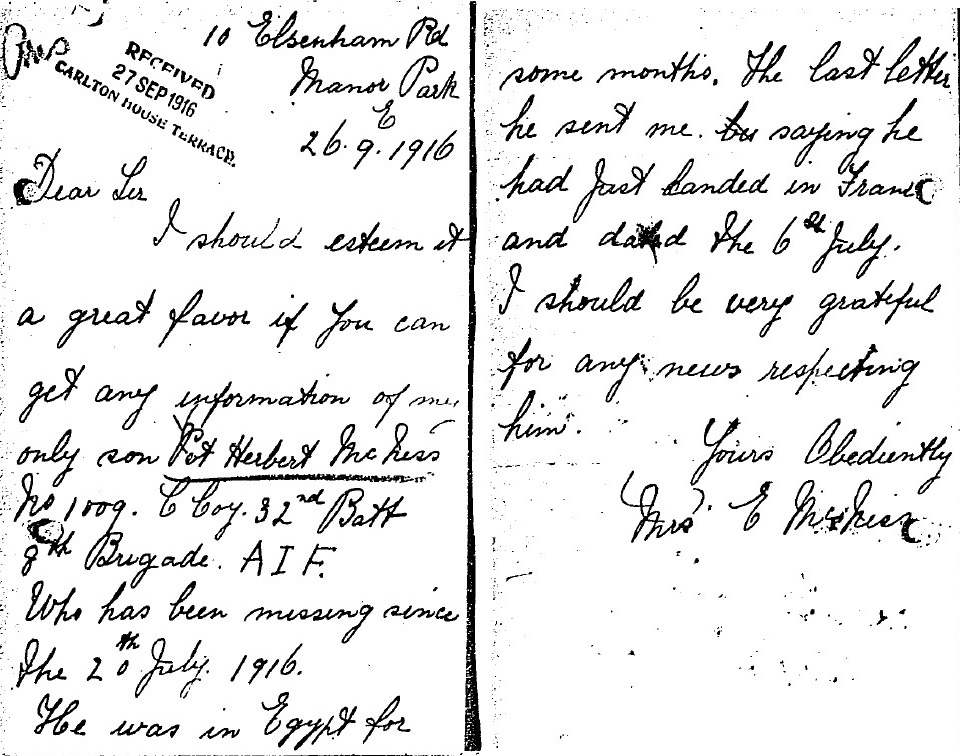 10 Elsenham Rd
Manor Park
E
26.9.1916
RECEIVED
27 SEP 1916
CARLTON HOUSE TERRACE.
Dear Sir
I should esteem it
a great favor if you can
get any information of my
only son Pvt Herbert McNess
No 1009. C Coy. 32nd Batt
8th Brigade. A I F.
Who has been missing since
the 20th July. 1916.
He was in Egypt for
some months. The last letter
he sent me. saying he
had just landed in France
and dated the 6st July.
I should be very grateful
for any news respecting
him.
Yours Obediently
Mrs E McNess